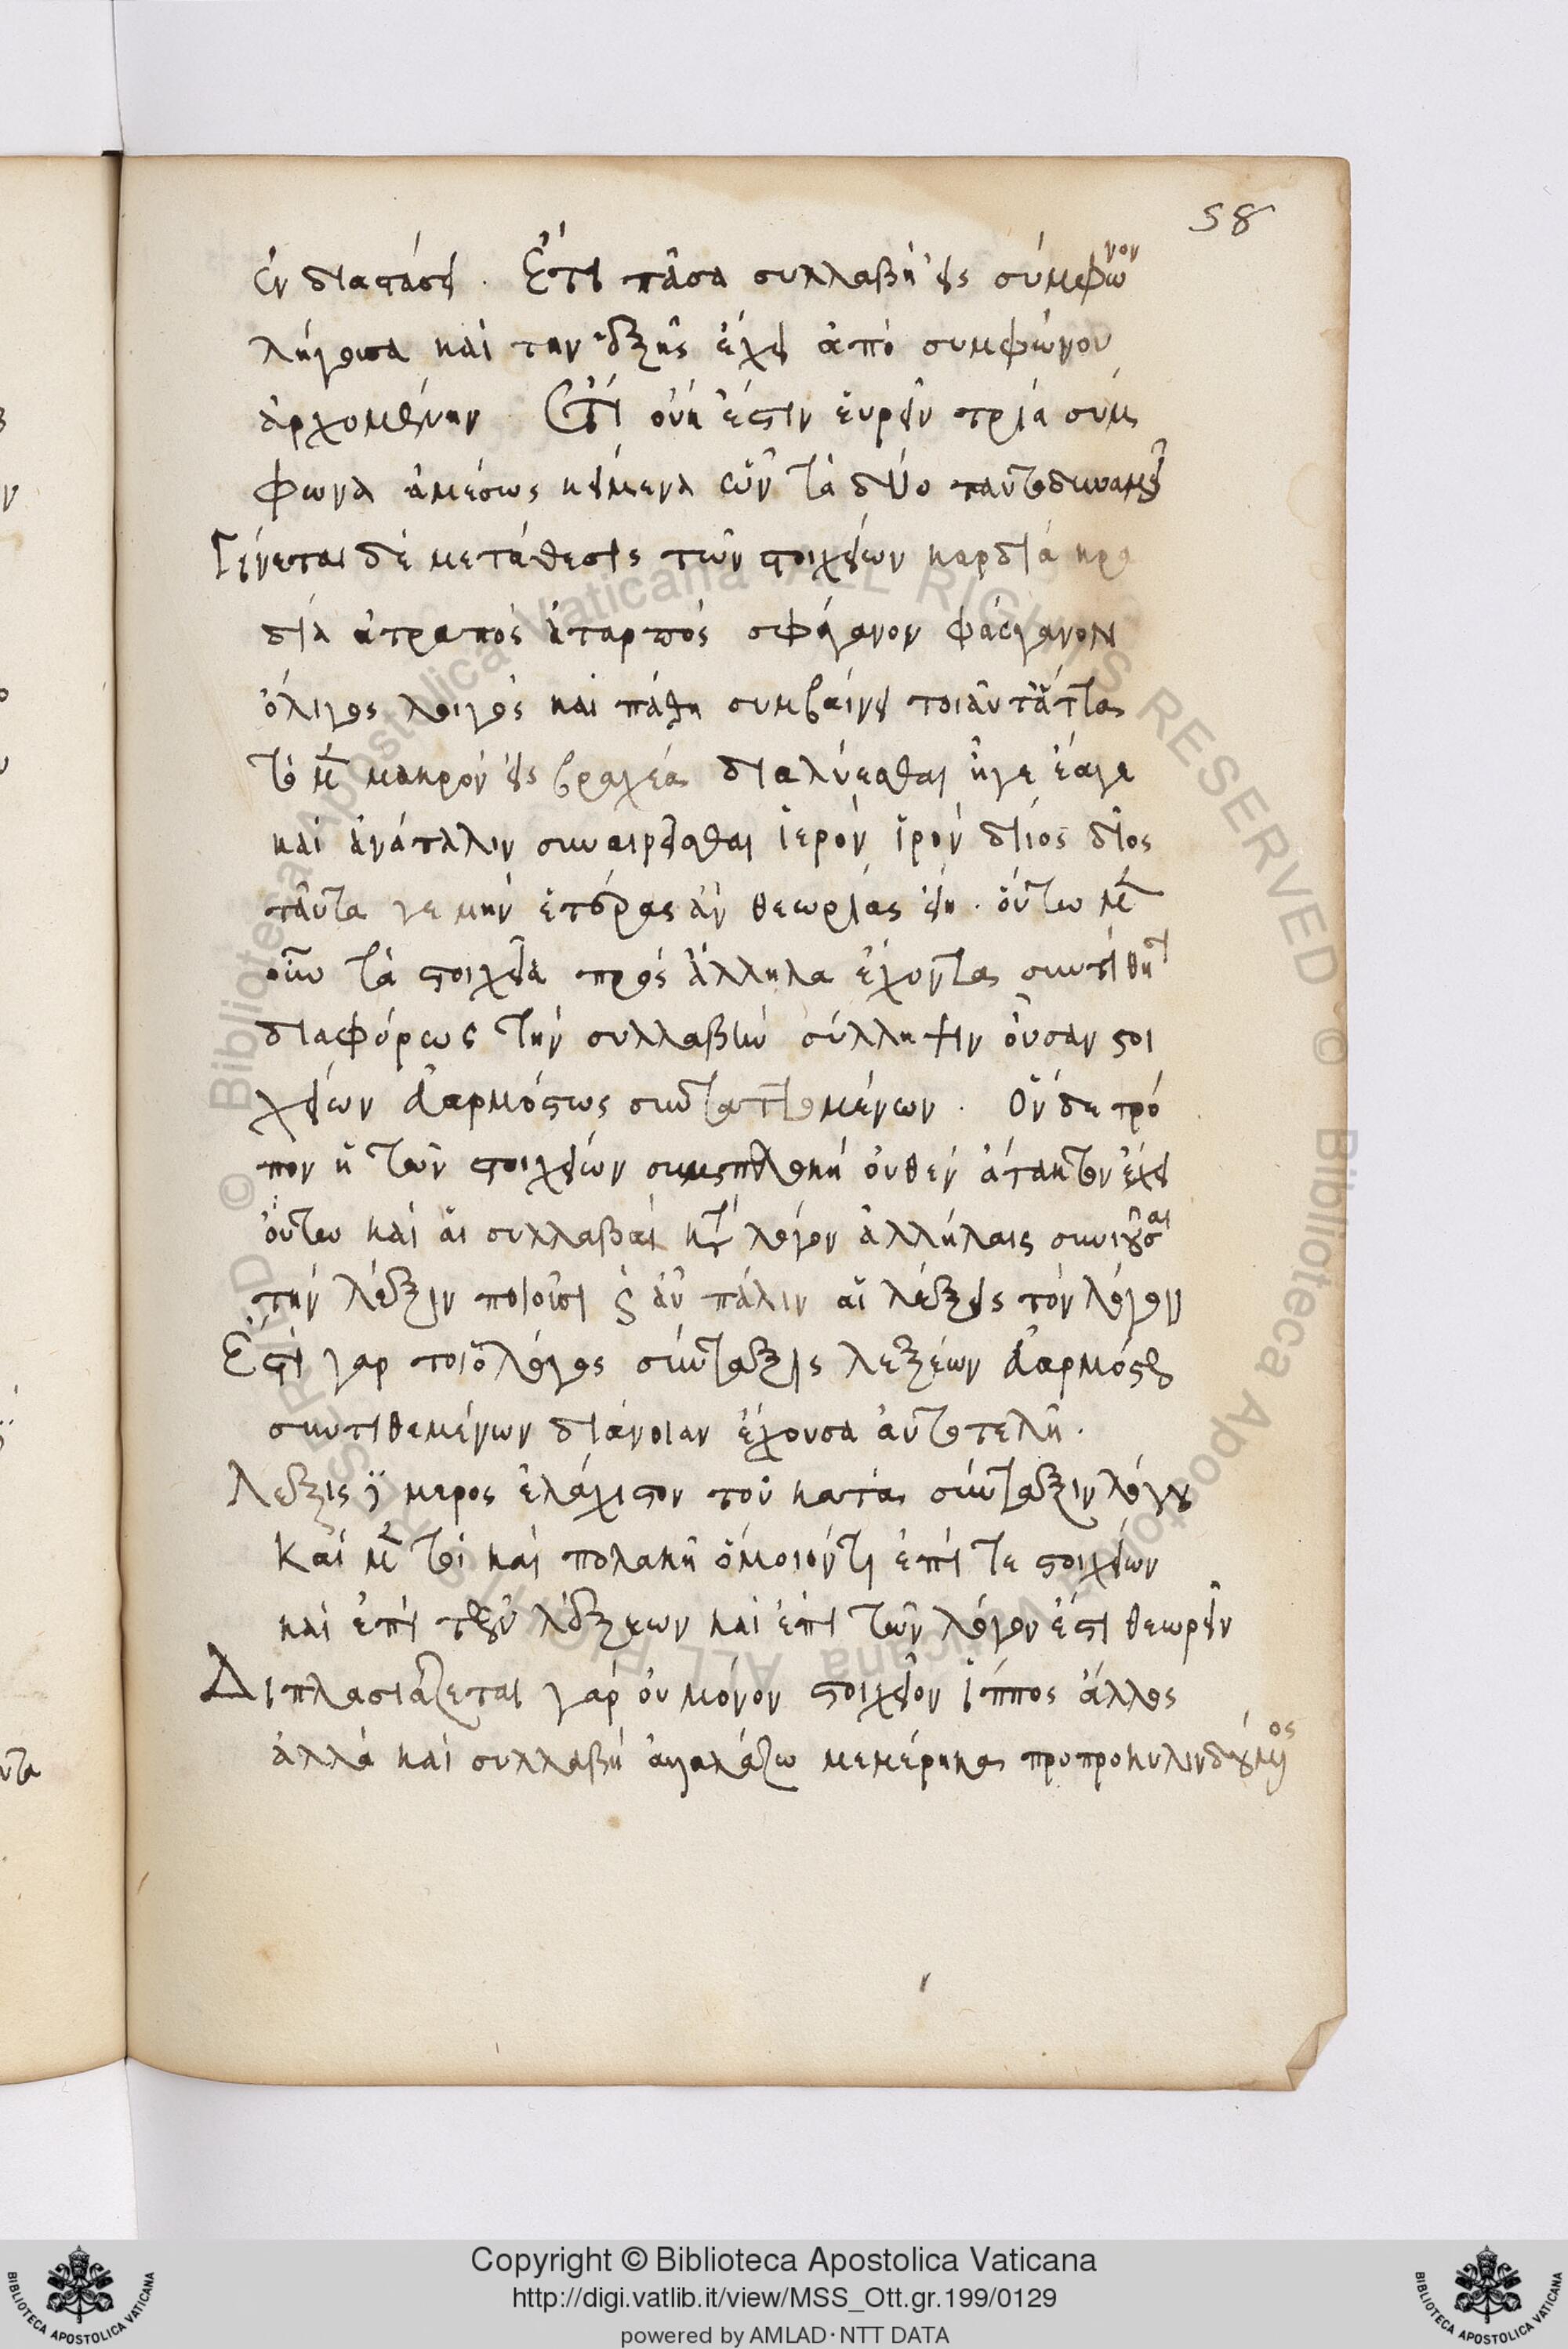 58
ἐν διαστάσει. Ἔτι πᾶσα συλλαβὴ εἰς σύμφωνον
λήγουσα καὶ τὴν ἑξῆς ἔχει ἀπὸ συμφώνου
ἀρχομένην Ἔτι οὐκ ἔστιν εὑρεῖν τρία σύμ
φωνα ἀμέσως κείμενα σὺν τὰ δύο ταυτοδυναμεῖ
Γίνεται δὲ μετάθεσις τῶν στοιχείων καρδία κρα
δία ἀτραπός ἀταρπός σφάγανον φάσγανον
ὀλίγος λοιγός καὶ πάθη συμβαίνει τοιαῦτάττα
τὸ μὲν μακρὸν εἰς βραχέα διαλύεσθαι ἦγε ἔαγε
καὶ ἀνάπαλιν συναιρεῖσθαι ἱερόν ἱρόν δῖιος δῖος
ταῦτα γε μὴν ἑτέρας ἂν θεωρίας εἴη. οὕτω μὲν
οὖν τὰ στοιχεῖα πρὸς ἄλληλα ἔχοντα συντίθησι
διαφόρως τὴν συλλαβὴν σύλληψιν οὖσαν στοι
χείων ἐναρμόστως συνταττομένων. Ὃν δὲ τρό
πον ἡ τῶν στοιχείων συμπλοκή οὐθέν ἄτακτον ἔχει
οὕτω καὶ αἱ συλλαβαί κατὰ λόγον ἀλλήλαις συνιοῦσαι
τὴν λέξιν ποιοῦσι καὶ αὖ πάλιν αἱ λέξεις τὸν λόγον
Ἔστι γαρ τοι ὁ λόγος σύνταξις λέξεων ἐναρμόστως
συντιθεμένων διάνοιαν ἔχουσα αὐτοτελῆ.
Λέξις δὲ μερος ἐλάχιστον τοῦ κατὰ σύνταξιν λόγου
Καὶ μέν τοι καὶ πολαχῆ ὅμοιόν τι ἐπί τε στοιχείων
καὶ ἐπὶ τῶν λέξεων καὶ ἐπὶ τῶν λόγον ἔστι θεωρεῖν
Διπλασιάζεται γάρ οὐ μόνον στοιχεῖον ἵππος ἄλλος
ἀλλὰ καὶ συλλαβή ἀγαλάζω μεμέρηκας προπροκυλινδούμενος
Copyright © Biblioteca Apostolica Vaticana
http://digi.vatlib.it/view/MSS_Ott.gr.199/0129
powered by AMLAD·NTT DATA